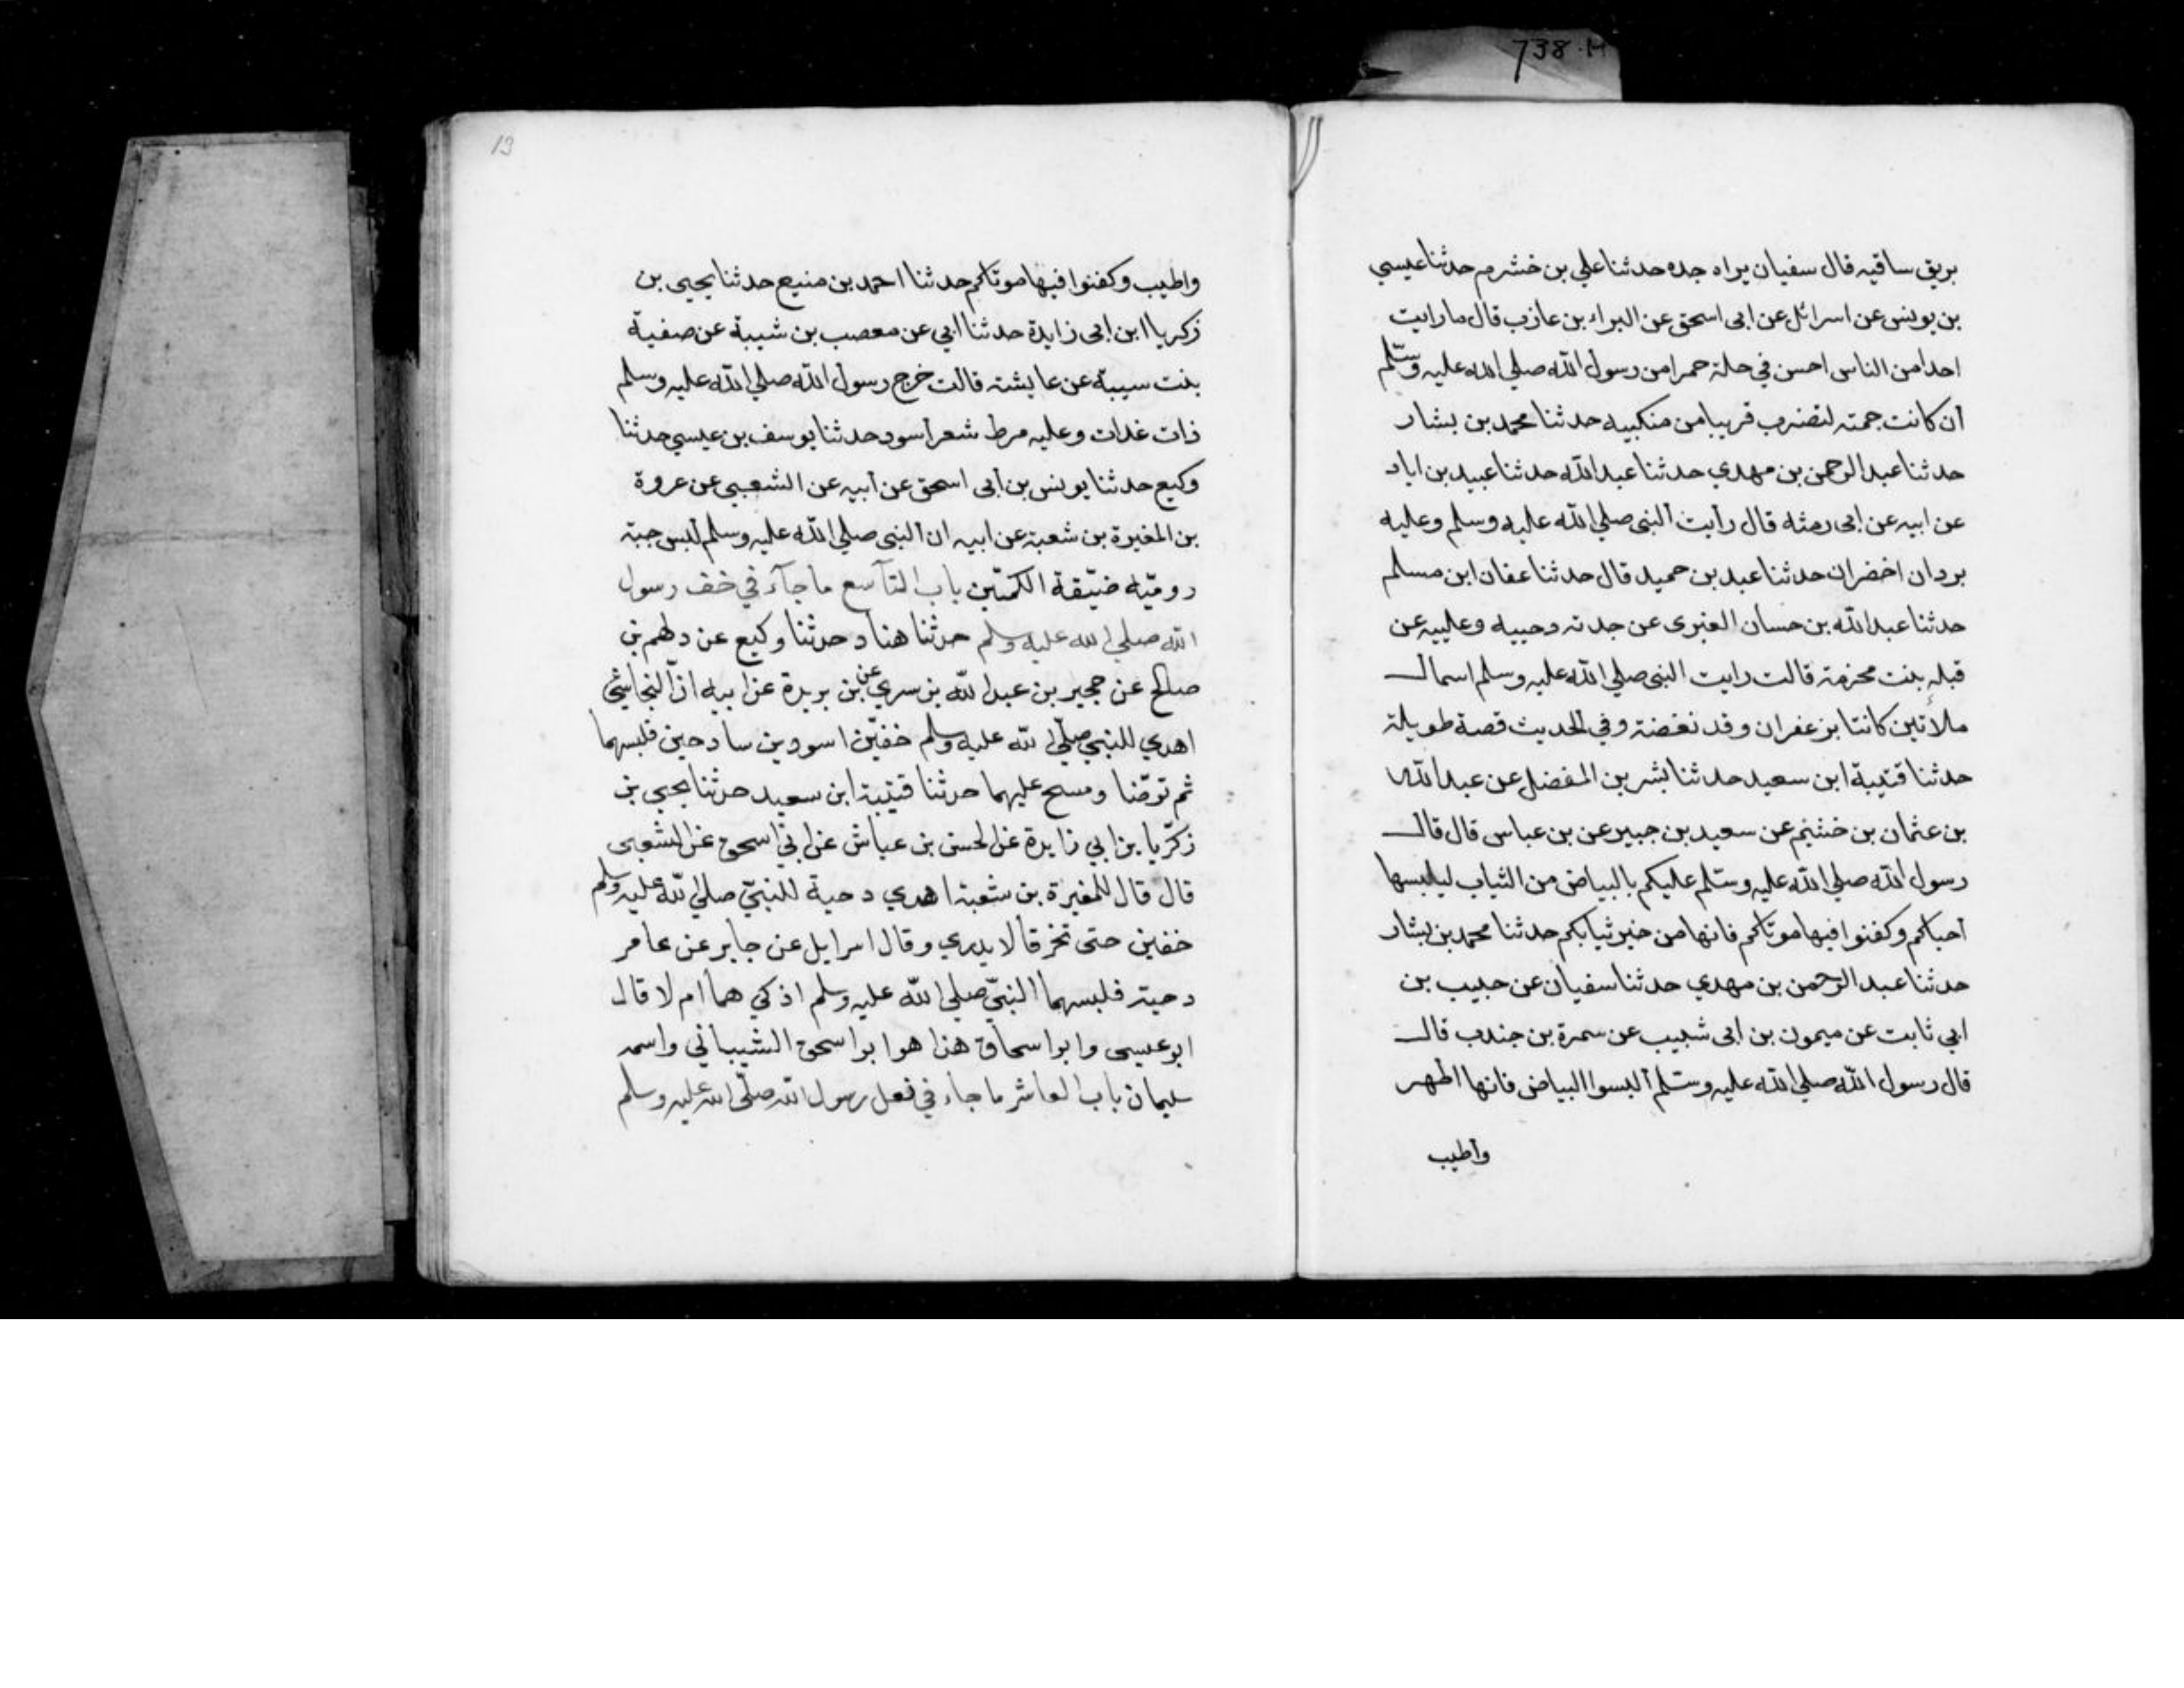 738·M
بريق ساقيه قال سفيان يراه جده حدثنا علي بن خشرم حدثنا عيسي
بن يونس عن اسرائل عن ابى اسحق عن البراء بن عازب قال ما رايت
احدا من الناس احسن في حلة حمرا من رسول الله صلي الله عليه وسلم
أن كانت جمته لتضرب قريبا من منكبيه حدثنا محمد بن بشار
حدثنا عبد الرحمن بن مهدي حدثنا عبد الله حدثنا عبيد بن اياد
عن ابيه عن ابى رمثه قال رأيت ألنبى صلي الله عليه وسلم وعليه
بردان اخضران حدثنا عبد بن حميد قال حدثنا عفان ابن مسلم
حدثنا عبد الله بن حسان العنبرى عن جدته دحيبه وعليبه عن
قبله بنت مخرمة قالت رايت النبى صلي الله عليه وسلم اسمال
ملأتين كانتا بزعفران وقد نغضته وفي الحديث قصة طويلة
حدثنا قتيبة ابن سعيد حدثنا بشر بن المفضل عن عبد الله
بن عثمان بن خشيم عن سعيد بن جبير عن بن عباس قال قال
رسول الله صلي الله عليه وسلم عليكم بالبياض من الثياب ليلبسها
أحياكم وكفنوا فيها موتاكم فانها من خير ثيابكم حدثنا محمد بن بشار
حدثنا عبد الرحمن بن مهدي حدثنا سفيان عن حبيب بن
ابي ثابت عن ميمون بن ابى شبيب عن سمرة بن جندب قال
قال رسول الله صلي الله عليه وسلم ألبسوا البياض فانها اطهر
وأطيب
13
واطيب وكفنوا فيها موتاكم حدثنا احمد بن منيع حدثنا يحيى بن
زكريا ابن ابى زايدة حدثنا ابي عن معصب بن شيبة عن صفية
بنت سيبة عن عايشة قالت خرج رسول الله صلي الله عليه وسلم
ذات غدات وعليه مرط شعر أسود حدثنا يوسف بن عيسي حدثنا
وكيع حدثنا يونس بن أبى اسحق عن أبيه عن الشعبى عن عروة
بن المغيرة بن شعبة عن ابيه ان ألنبى صلي الله عليه وسلم ألبس جبة
روميّه ضيّقة الكمّين باب التآسع ما جآء في خف رسول
الله صلي الله عليه وسلم حدثنا هناد حدثنا وكيع عن دلهم بن
صالح عن حجير بن عبد الله بن سري عن بن بريدة عن ابيه ان ألنجاشي
اهدي للنبي صلّي الله عليه وسلم خفيّن اسودين سادحين فلبسهما
ثم توضّنا ومسح عليهما حدثنا قتيبة ابن سعيد حدثنا يحيى بن
زكرّيا بن ابي زايدة عن الحسن بن عباش عن ابي اسحق عن الشعبى
قال قال للمغيرة بن شعبة اهدي دحية للنبيّ صلي الله عليه وسلم
خفين حتى تخرقا لا يدري وقال اسرايل عن جابر عن عامر
دحية فلبسهما النبيّ صلي الله عليه وسلم اذكي هما ام لا قال
ابو عيسى وابو اسحاق هذا هو ابو اسحق الشيباني واسمه
سليمان باب العاشر ما جاء في نعل رسول الله صلّى الله عليه وسلم